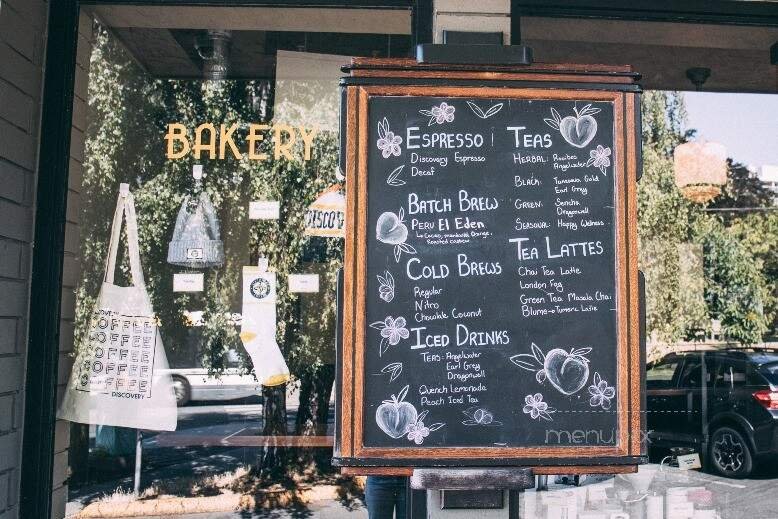 BAKERY
DISCOV
I LOVE
COFFEE
COFFEE
COFFEE
COFFEE
COFFEE
DISCOVERY
ESPRESSO!
Discovery Espresso
Decaf
BATCH BREW
PERU EL EDEN
Mandarin Orange,
Roasted Cashew
COLD BREWS
Regular
Nitro
Chocolate Coconut
ICED DRINKS
TEAS: Angelwater
Earl Grey
Dragonwell
Quench Lemonade
Peach Iced Tea
TEAS
HERBAL: Rooibos
Angelwater
BLACK: Tumsong Gold
Earl Grey
GREEN: Sencha
Dragonwell
SEASONAL: Happy Wellness
TEA LATTES
Chai Tea Latte
London Fog
Green Tea Masala Chai
Blume-o Tumeric Latte
menupix